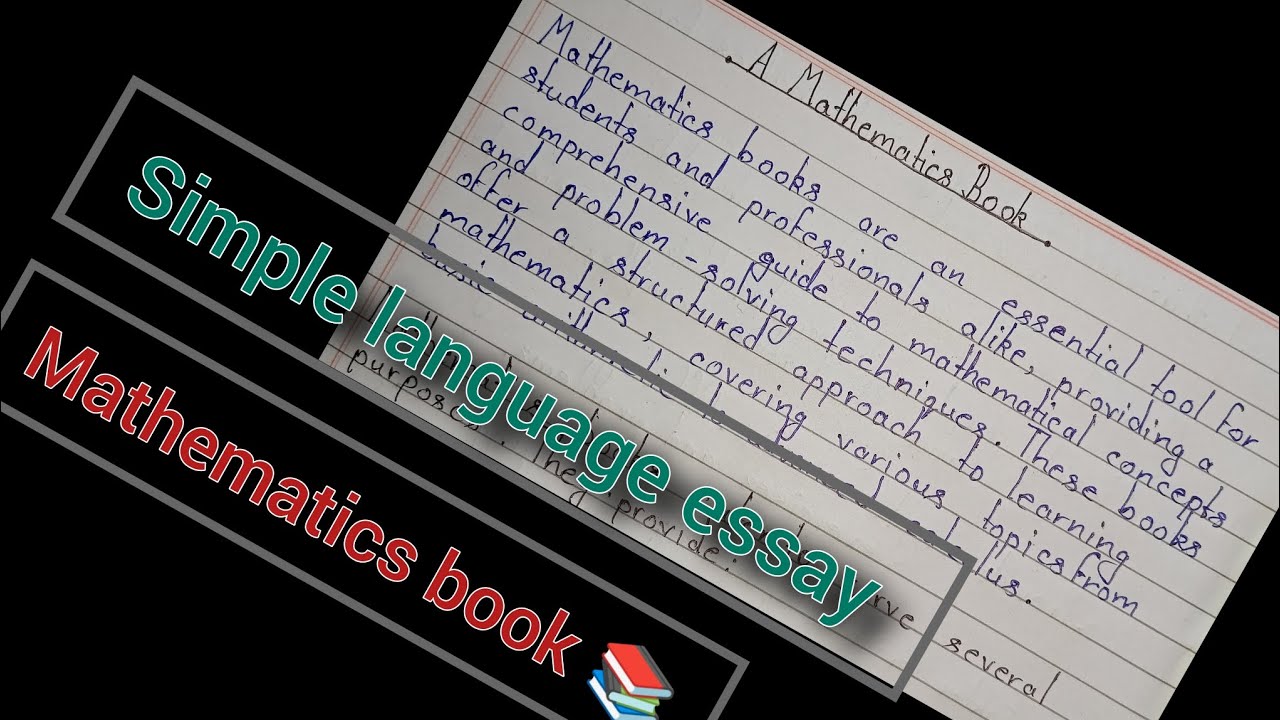 A Mathematics Book
Mathematics books are an essential tool for
students and professionals alike, providing a
comprehensive guide to mathematical concepts
and problem-solving techniques. These books
offer a structured approach to learning
mathematics, covering various topics from
basic arithmetic to
several
purposes. They provide:
Simple language essay
Mathematics book 📚